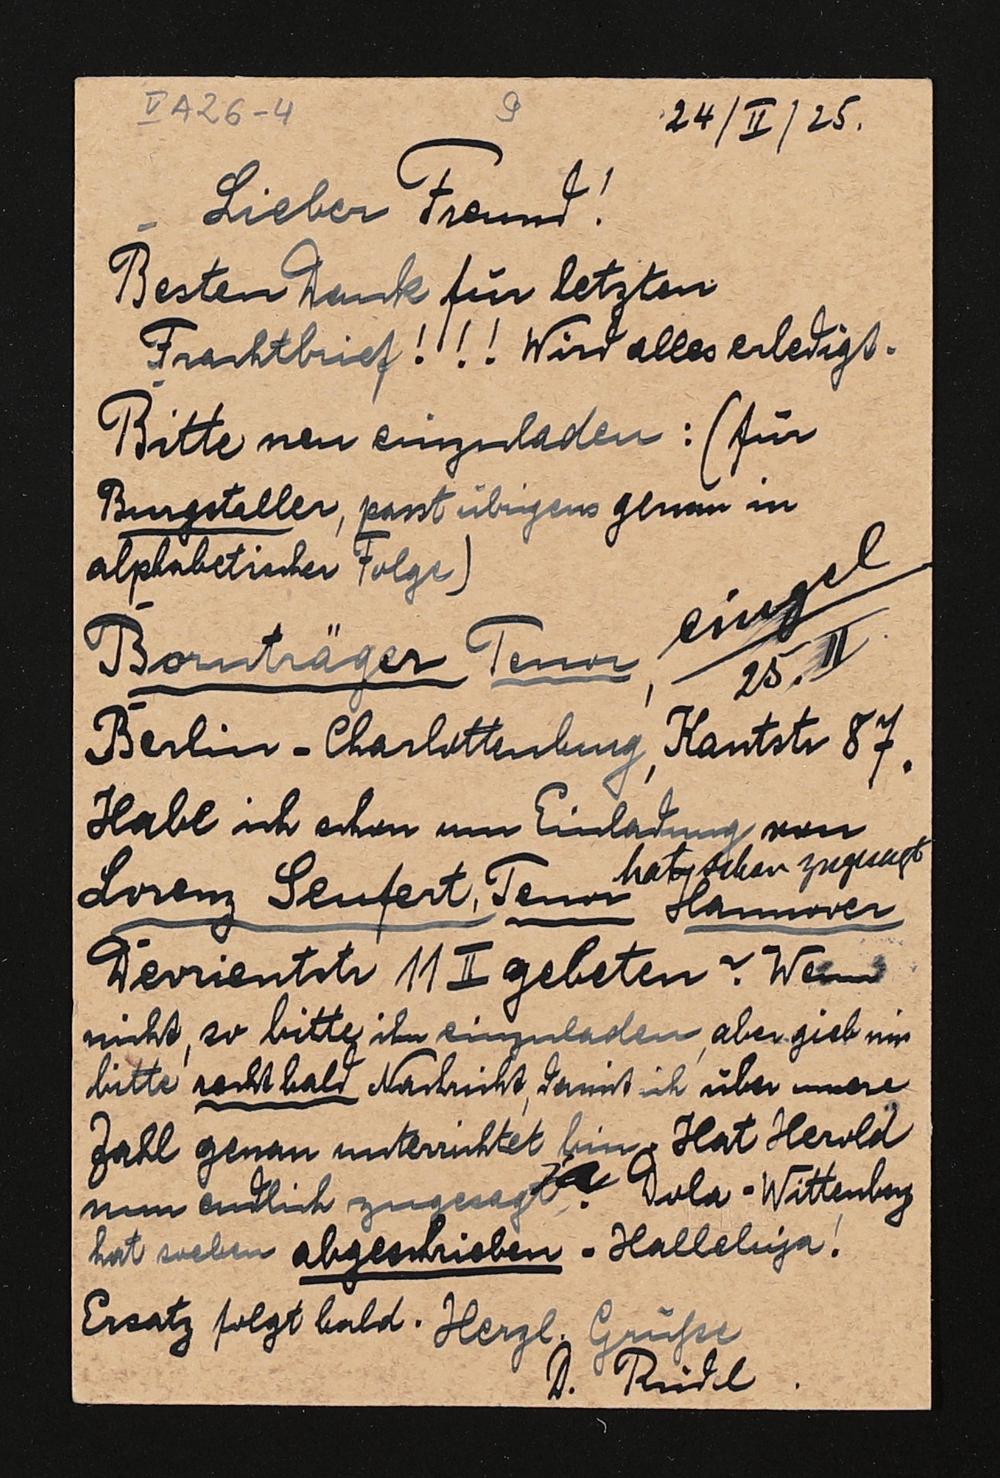 V A 26-4
9
24/II/25.
Lieber Freund!
Besten Dank für letzten
Frachtbrief!!! Wird alles erledigt.
Bitte neu einzuladen: (für
Burgstaller, passt übrigens genau in
alphabetischer Folge)
eingel
25.II
Bornträger Tenor,
Berlin-Charlottenburg, Kantstr 87.
Habe ich schon um Einladung von
hat schon zugesagt
Lorenz Seufert, Tenor Hannover
Devrientstr 11 II gebeten? Wenn
nicht, so bitte ihn einzuladen, aber gieb mir
bitte recht bald Nachricht, damit ich über unsere
Zahl genau unterrichtet bin. Hat Herold
ja
nun endlich zugesagt? Dola-Wittenberg
hat soeben abgeschrieben - Halleluja!
Ersatz folgt bald. Herzl. Grüße
D. Riedl